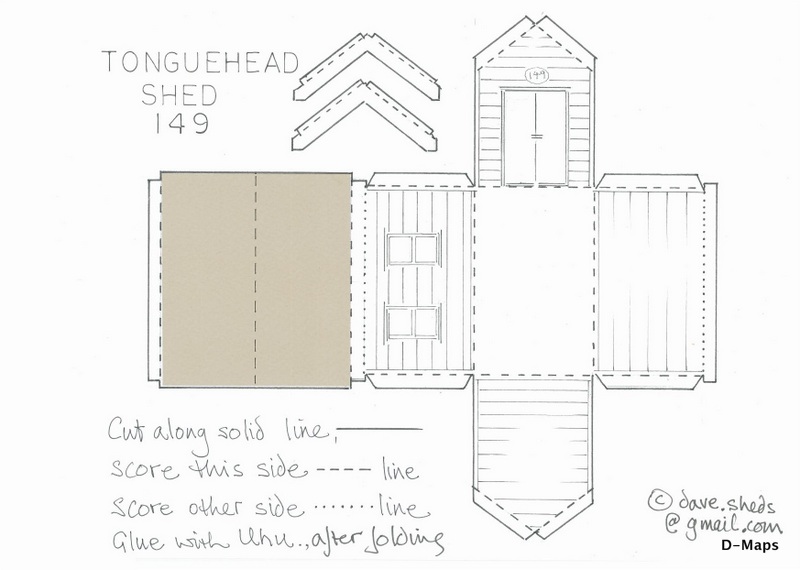 TONGUEHEAD
SHED
149
149
Cut along solid line,
Score this side ---- line
Score other side ....... line
Glue with Uhu.., after folding
© dave.sheds
@gmail.com
D-Maps